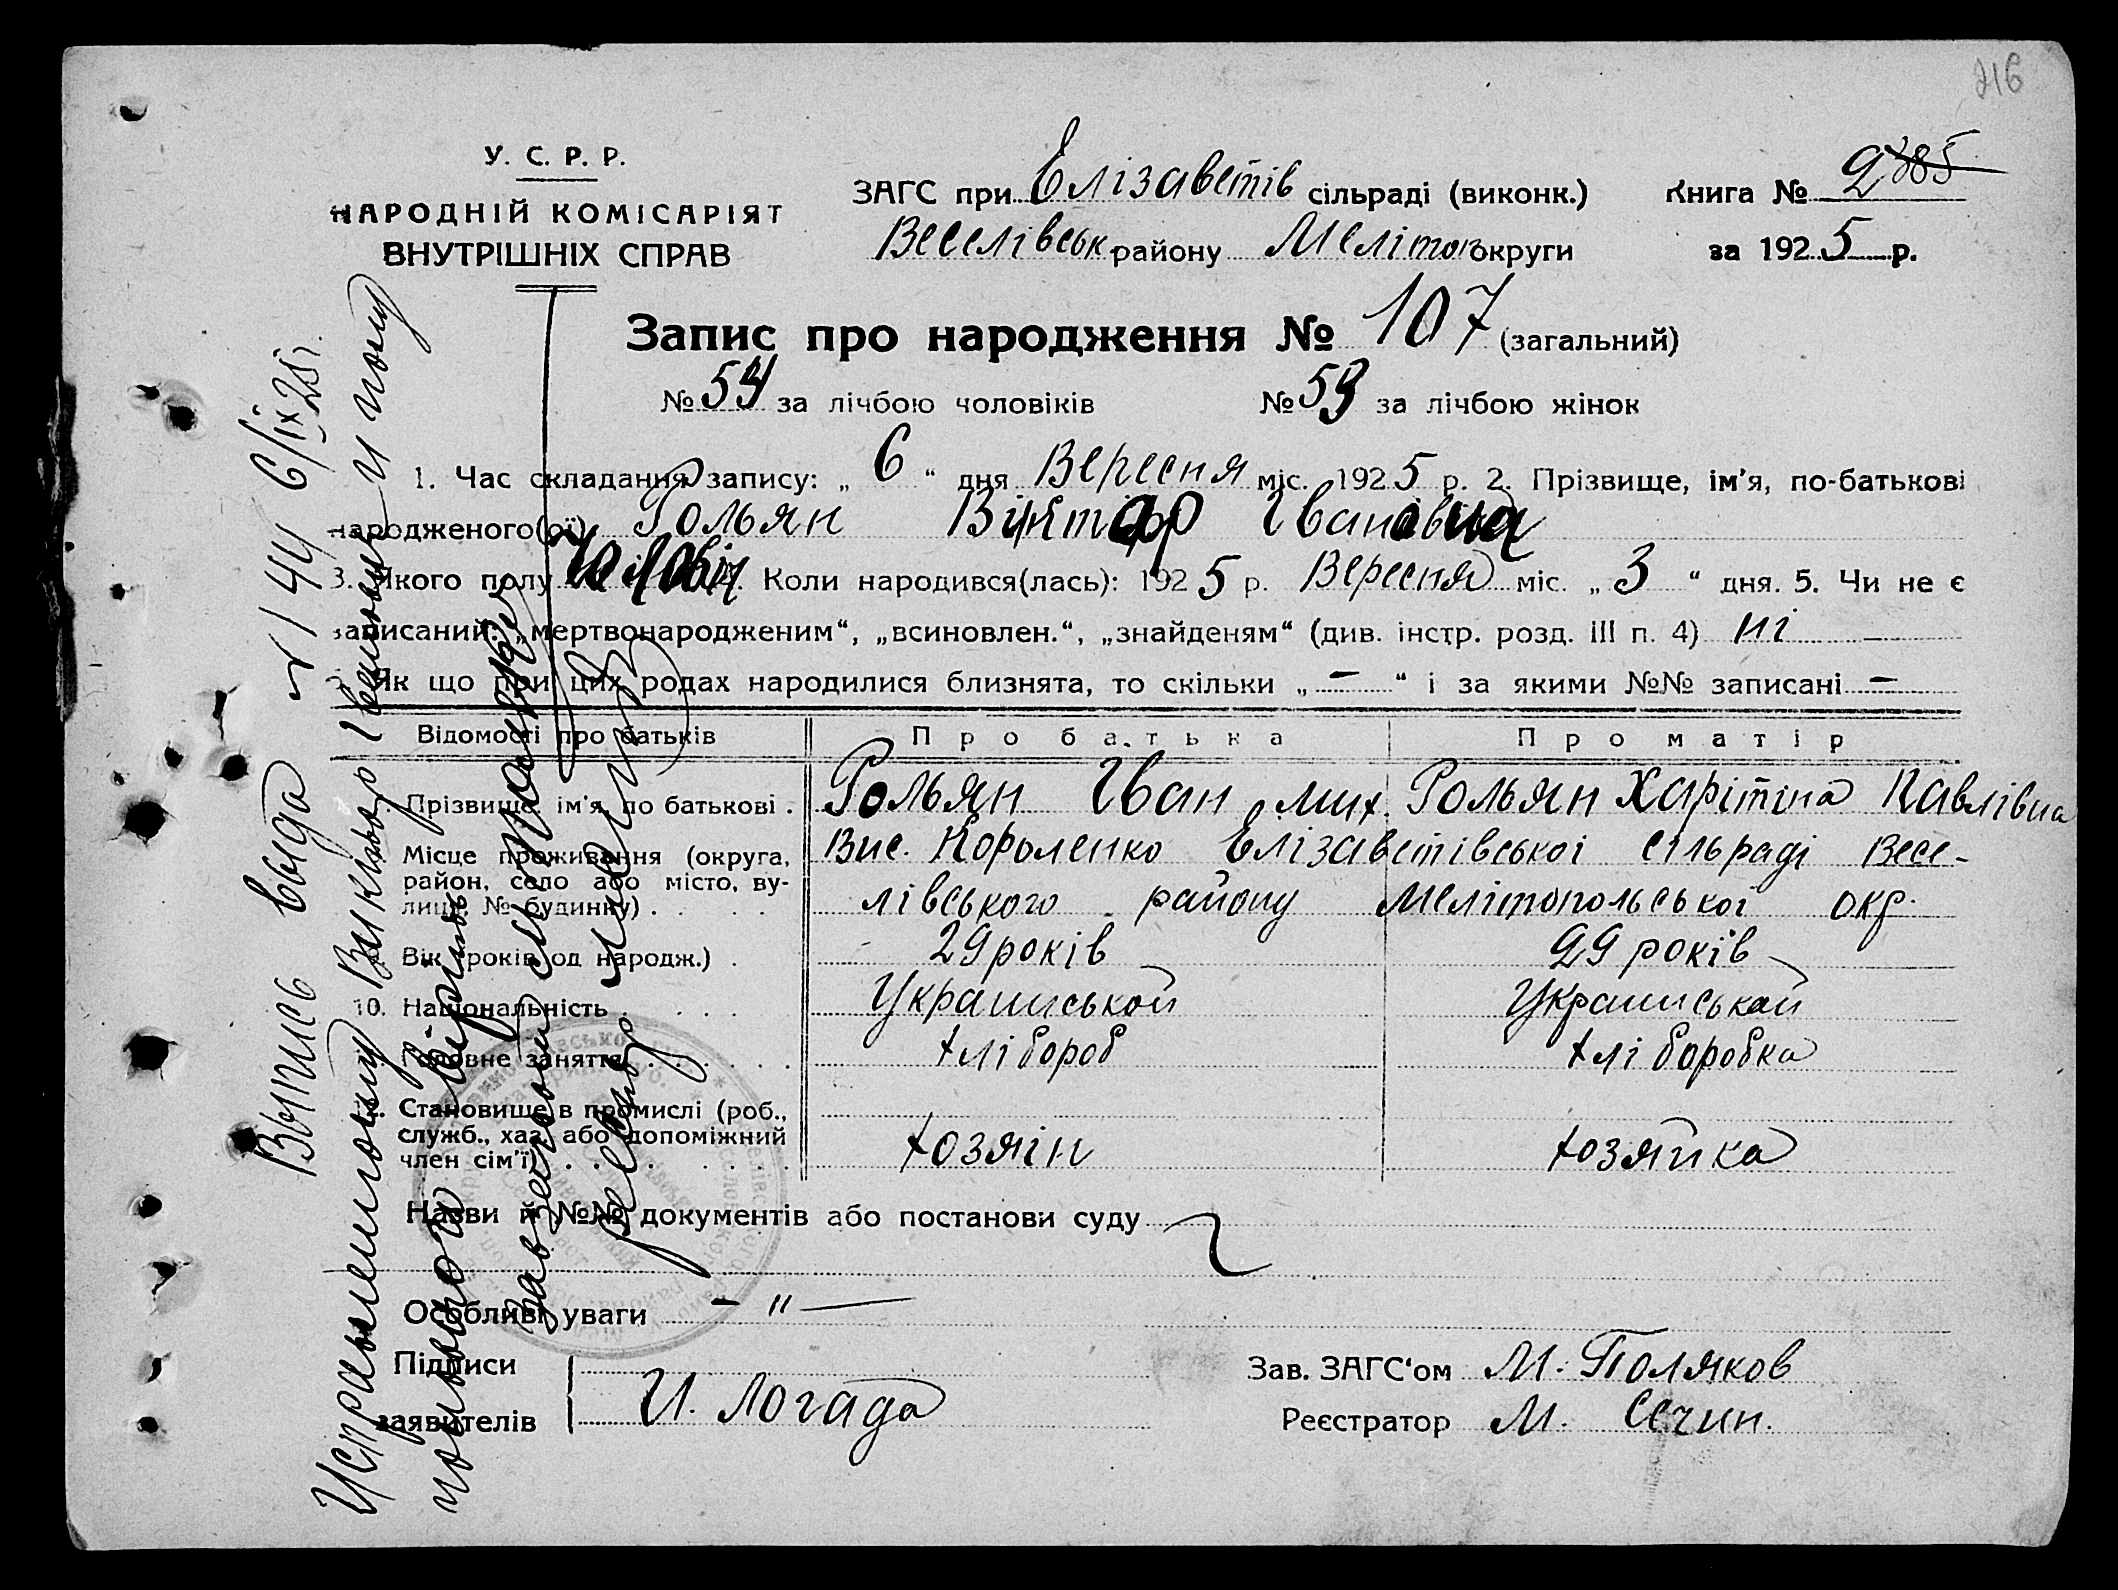 216
У. С. Р. Р.
НАРОДНІЙ КОМІСАРІЯТ
ВНУТРІШНІХ СПРАВ
ЗАГС при Елізаветів сільраді (виконк.)
Книга № 2
Веселівськ району Мелітоп округи
за 1925 р.
Запис про народження № 107 (загальний)
№ 54 за лічбою чоловіків № 53 за лічбою жінок
1. Час складання запису: „ 6 “ дня Вересня міс. 1925 р. 2. Прізвище, ім'я, по-батькові
народженого(ої) Рольян Віктор Іванов
3. Якого полу Чоловіч. Коли народився(лась): 1925 р. Вересня міс. „ 3 “ дня. 5. Чи не є
записаний: „мертвонародженим“, „всиновлен.“, „знайденям“ (див. інстр. розд. III п. 4) ні
Як що при цих родах народилися близнята, то скільки „ — “ і за якими №№ записані —
Відомості про батьків Про батька Про матір
Прізвище, ім'я, по батькові . Рольян Іван Мих. Рольян Харітіна Павлівна
Місце проживання (округа, район, село або місто, ву-лиця, № будинку) . . . .
Вис. Короленко Елізаветівської сільраді Весе-
лівського району Мелітопольської окр.
Вік (років од народж.) . 29 років 29 років
10. Національність . . . . Украинськой Украинськой
Головне заняття . . . . . хлібороб хліборобка
Становище в промислі (роб., служб., хаз. або допоміжний член сім'ї) . . . . хозяін хозяйка
Назви й №№ документів або постанови суду
Особливі уваги — " —
Підписи
заявителів И. Логада
Зав. ЗАГС'ом М. Поляков
Реєстратор М. Сечин.
Выпись выда № 144 6/IX 25 г.
Исправленному Виктор Іванови и полу
верить